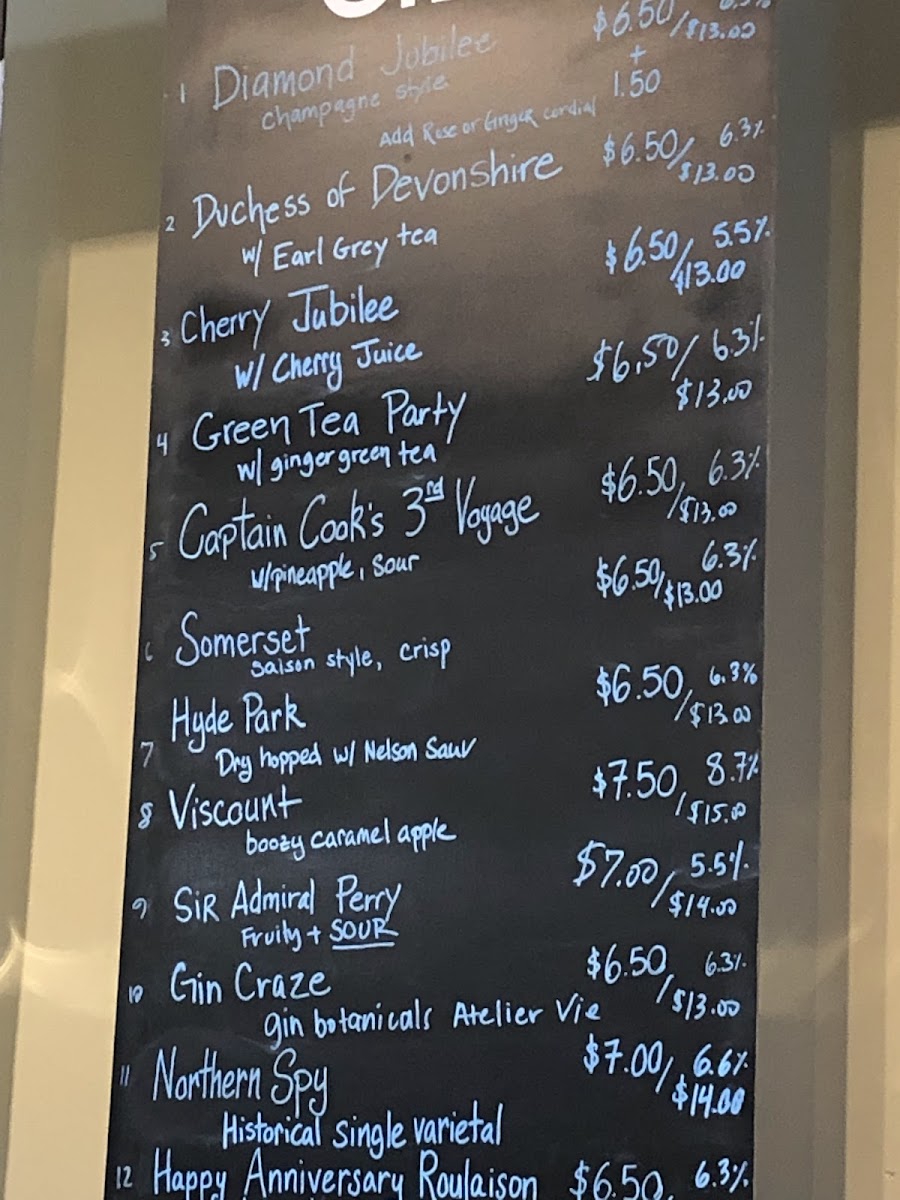 1 Diamond Jubilee $6.50/$13.00
champagne style + 1.50
Add Rose or Ginger cordial
2 Duchess of Devonshire $6.50/$13.00 6.3%
w/ Earl Grey tea
3 Cherry Jubilee $6.50/$13.00 5.5%
w/ Cherry Juice
4 Green Tea Party $6.50/$13.00 6.3%
w/ ginger green tea
5 Captain Cook's 3rd Voyage $6.50/$13.00 6.3%
w/pineapple, Sour
6 Somerset $6.50/$13.00 6.3%
Saison style, crisp
7 Hyde Park $6.50/$13.00 6.3%
Dry hopped w/ Nelson Sauv
8 Viscount $7.50/$15.00 8.7%
boozy caramel apple
9 SiR Admiral Perry $7.00/$14.00 5.5%
Fruity + SOUR
10 Gin Craze $6.50/$13.00 6.3%
gin botanicals Atelier Vie
11 Northern Spy $7.00/$14.00 6.6%
Historical single varietal
12 Happy Anniversary Roulaison $6.50 6.3%